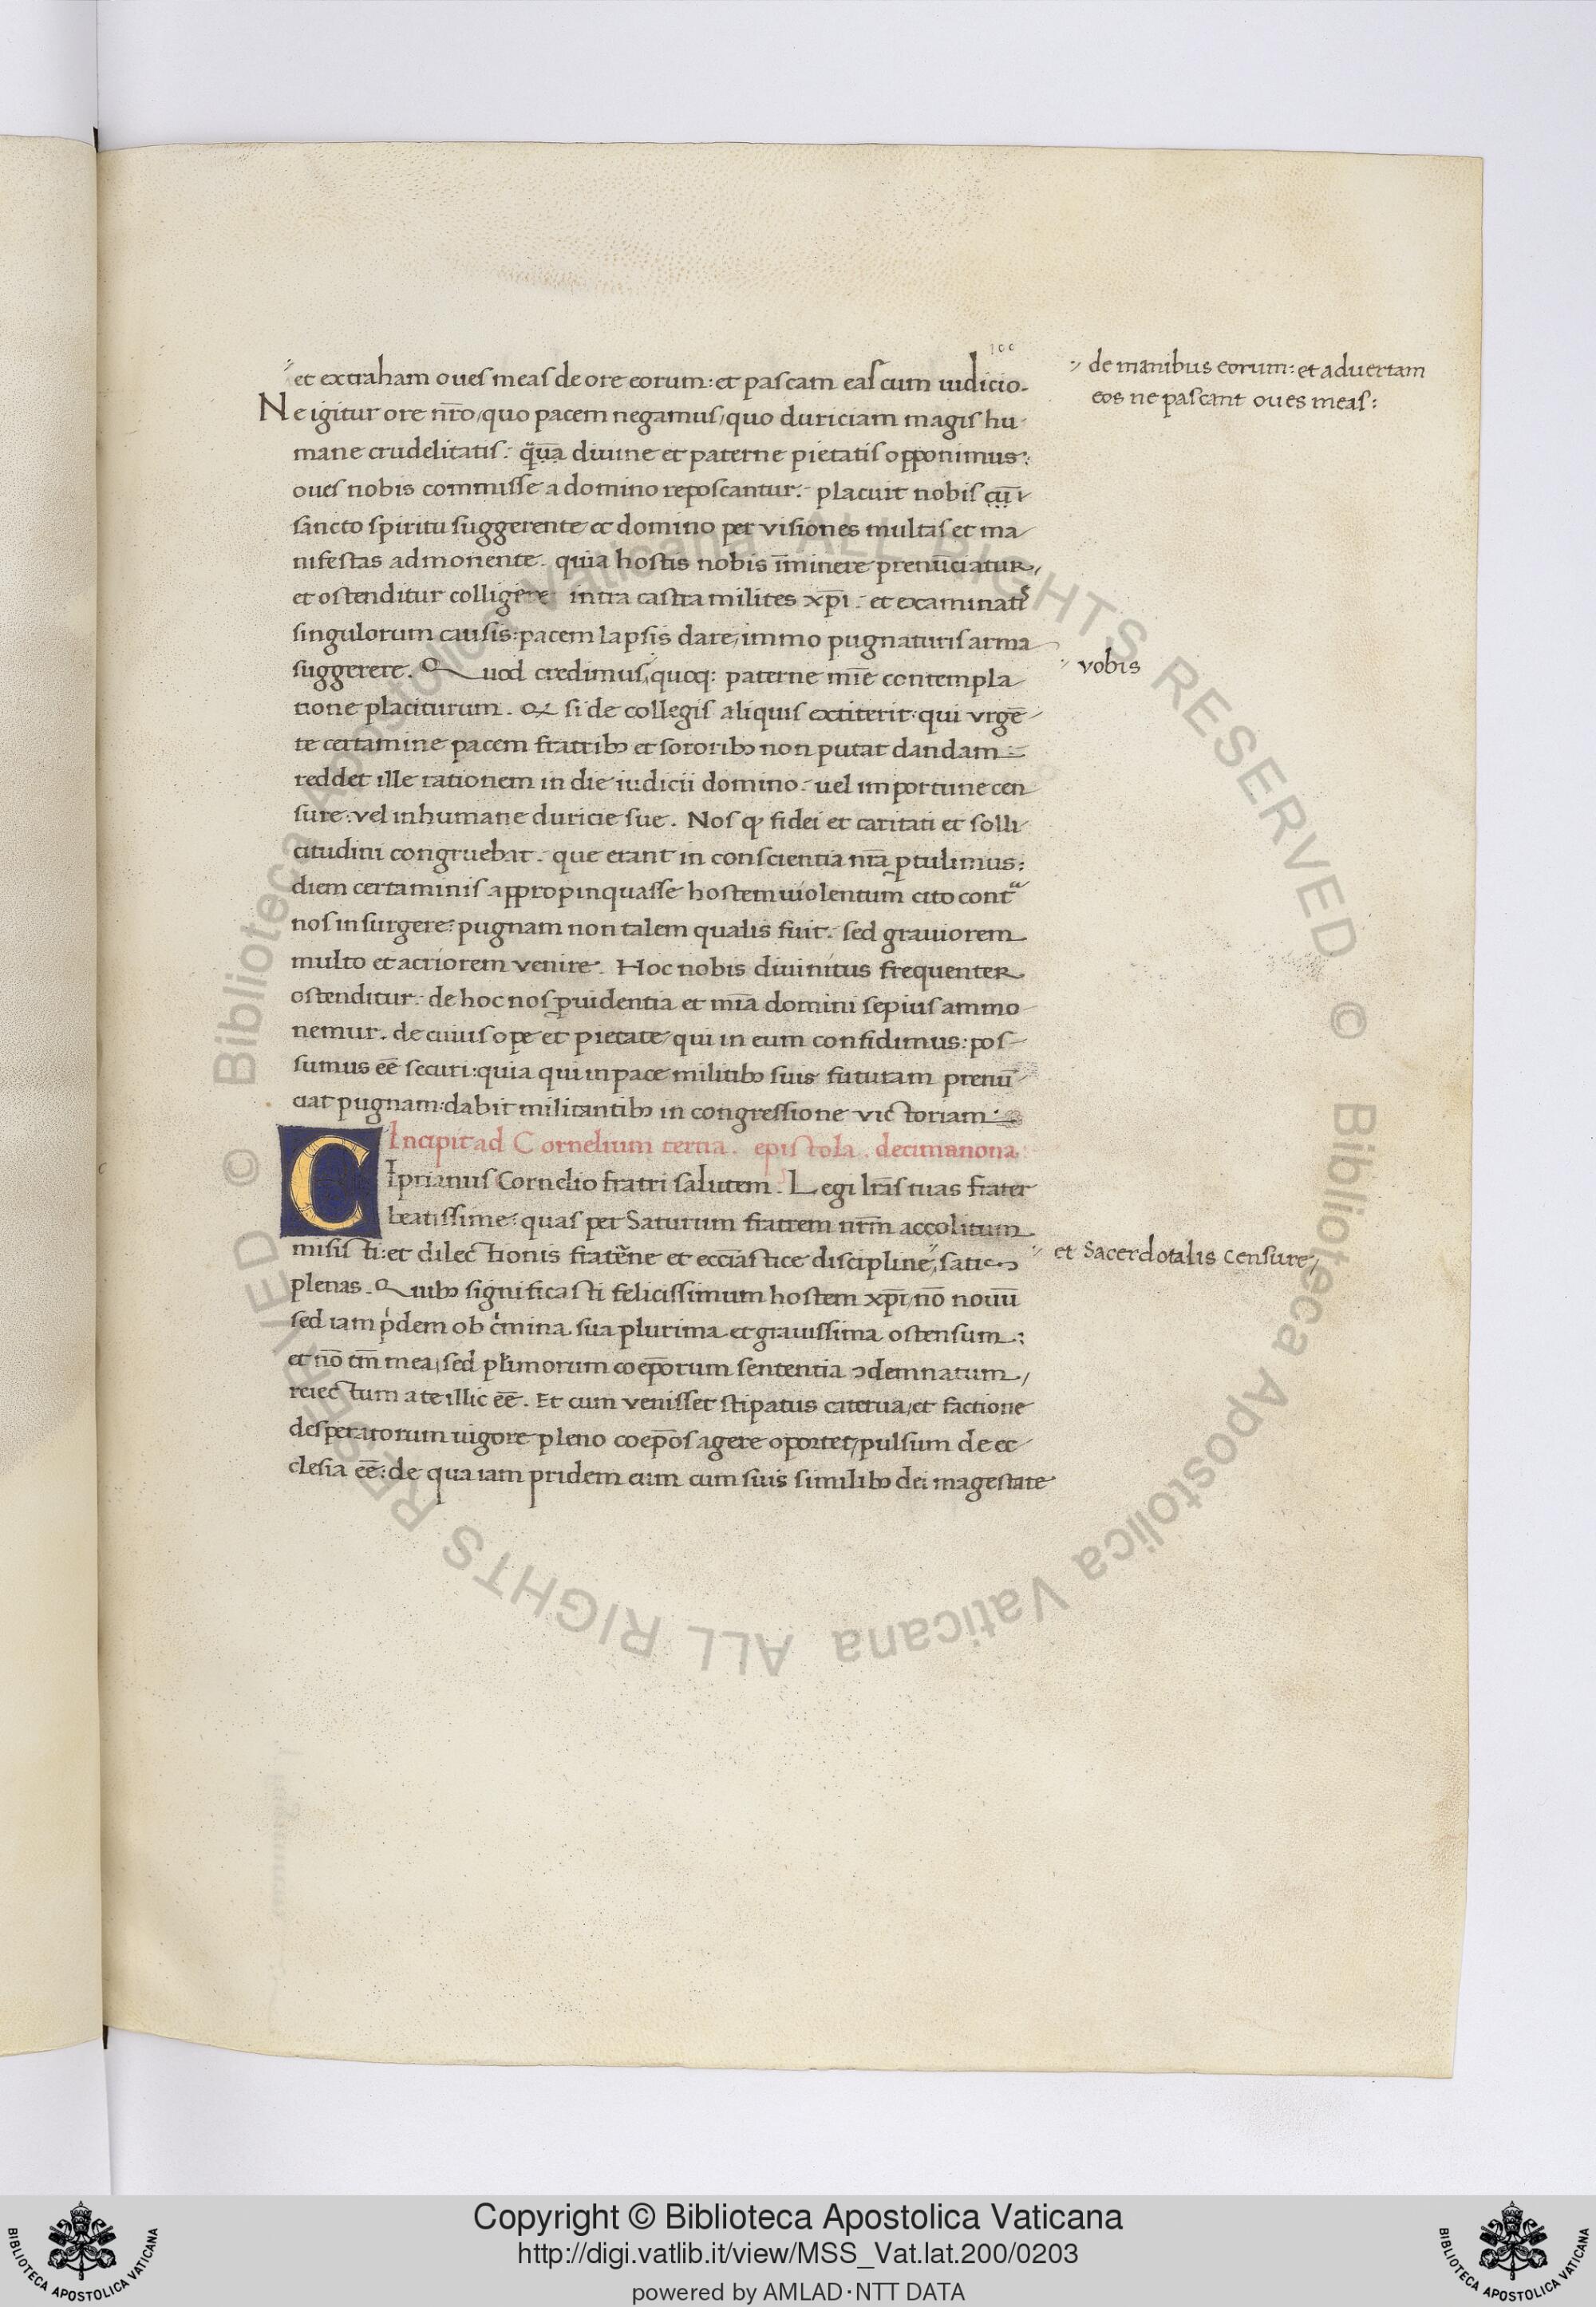 100
et extraham oues meas de ore eorum: et pascam eas cum iudicio.
Ne igitur ore nr̄o, quo pacem negamus, quo duriciam magis hu
mane crudelitatis: qua̅ diuine et paterne pietatis opponimus:
oues nobis commisse a domino reposcantur: placuit nobis
sancto spiritu suggerente et domino per visiones multas et ma
nifestas admonente. quia hostis nobis im̄inere prenūciatur,
et ostenditur colligere intra castra milites xp̄i: et examinatis
singulorum causis: pacem lapsis dare, immo pugnaturis arma
suggerere. Quod credimus, quoq: paterne mīe contempla
tione placiturum. Et si de collegis aliquis extiterit: qui vrgē
te certamine pacem fratribꝫ et sororibꝫ non putat dandam:
reddet ille rationem in die iudicii domino: uel importune cen
sure: vel inhumane duricie sue. Nos qꝫ fidei et caritati et solli
citudini congruebat: que erant in conscientia nr̄a ꝓtulimus:
diem certaminis appropinquasse hostem uiolentum cito contᵃ
nos insurgere: pugnam non talem qualis fuit: sed grauiorem
multo et acriorem venire. Hoc nobis diuinitus frequenter
ostenditur: de hoc nos ꝓuidentia et mīa domini sepius ammo
nemur. de cuius ope et pietate qui in eum confidimus: pos
sumus eē securi: quia qui in pace militibꝫ suis futuram prenū
ciat pugnam: dabit militantibꝫ in congressione victoriam:
Incipit ad Cornelium tertia. epistola. decimanona
CIprianus Cornelio fratri salutem. Legi lr̄as tuas frater
beatissime: quas per Saturum fratrem nr̄m accolitum
misisti: et dilectionis frat̄ne et ecc̄iastice discipline, satis
plenas. Quibꝫ significasti felicissimum hostem xp̄i, nō nouū
sed iam pͥdem ob cͥmina sua plurima et grauissima ostensum:
et nō tm̄ mea, sed plͥimorum coep̄orum sententia ꝯdemnatum,
reiectum a te illic eē. Et cum venisset stipatus caterua, et factione
desperatorum uigore pleno coep̄os agere oportet, pulsum de ec
clesia eē: de qua iam pridem cum cum suis similibꝫ dei magestate
de manibus eorum: et aduertam
eos ne pascant oues meas:
vobis
et Sacerdotalis censure,
© Biblioteca Apostolica Vaticana ALL RIGHTS RESERVED
© Biblioteca Apostolica Vaticana ALL RIGHTS RESERVED
Copyright © Biblioteca Apostolica Vaticana
http://digi.vatlib.it/view/MSS_Vat.lat.200/0203
powered by AMLAD·NTT DATA
BIBLIOTECA APOSTOLICA VATICANA
BIBLIOTECA APOSTOLICA VATICANA